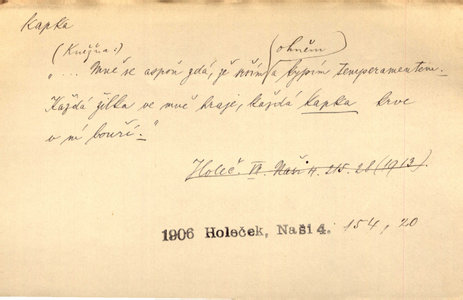 kapka
(Kněžna:)
(ohněm)
"... Mně se aspoň zdá, že hořím a kypím temperamentem.
Každá žilka ve mně hraje, každá kapka krve
v ní bouří."
Holeč. IV Naši 4. 215. 28 (1913).
1906 Holeček, Naši 4. 154, 20